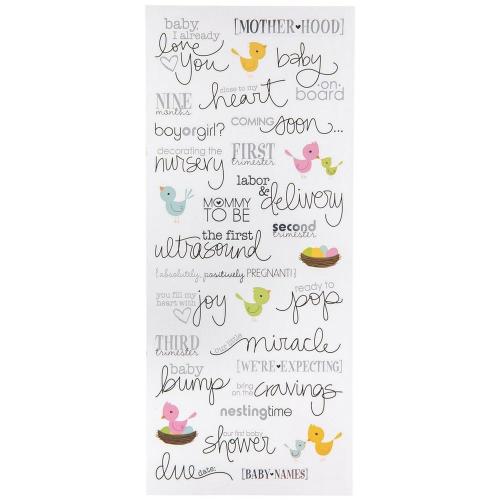 baby,
I already
love
you
[MOTHER♥HOOD]
baby
on
board
close to my
heart
NINE
months
COMING
soon...
boyorgirl?
decorating the
nursery
FIRST
trimester
labor
&
delivery
MOMMY
TO BE
second
trimester
the first
ultrasound
{absolutely, positively PREGNANT!}
you fill my
heart with
joy
ready to
pop
THIRD
trimester
our little
miracle
[WE'RE♥EXPECTING]
baby
bump
bring
on the
cravings
nestingtime
our first baby
shower
due date:
[BABY♥NAMES]